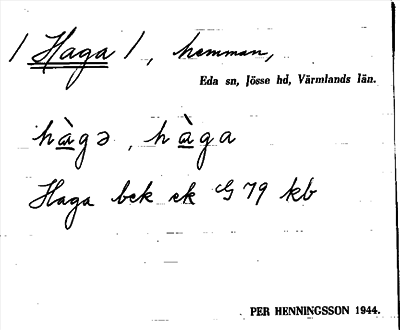 / Haga /, hemman,
Eda sn, Jösse hd, Värmlands län.
hàgə, hàga
Haga bck ek G 79 kb
PER HENNINGSSON 1944.